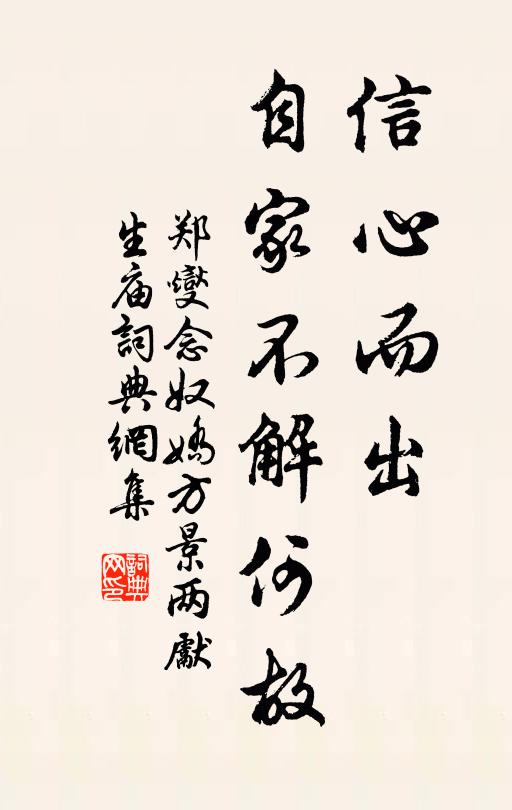 信心而出
自家不解何故
郑燮念奴嬌方景两獻
生庙詞典網集
詞典网印